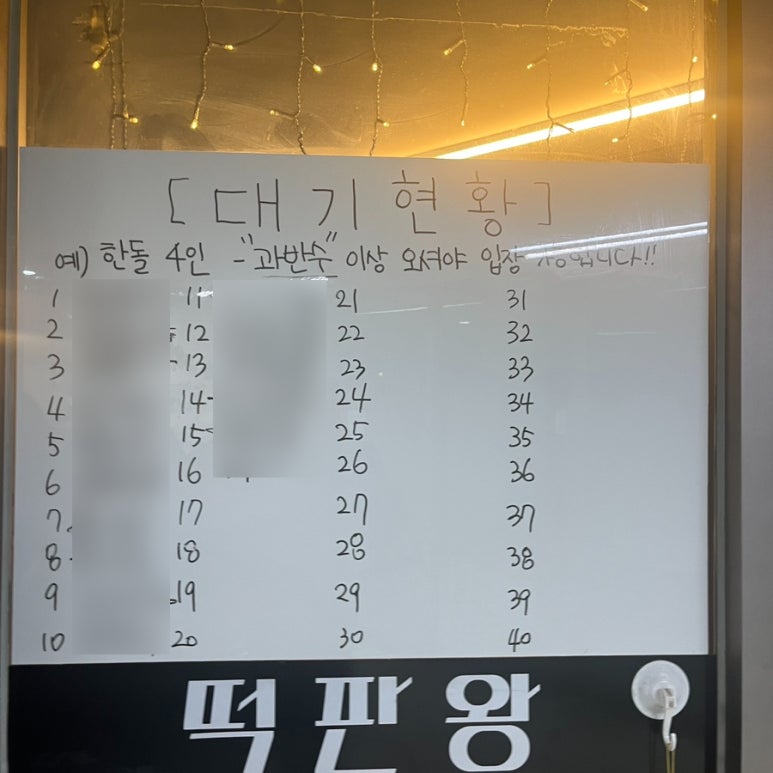 [대기현황]
예) 한돌 4인 - "과반수" 이상 오셔야 입장 가능합니다!!
1 11 21 31
2 12 22 32
3 13 23 33
4 14 24 34
5 15 25 35
6 16 26 36
7 17 27 37
8 18 28 38
9 19 29 39
10 20 30 40
떡판왕